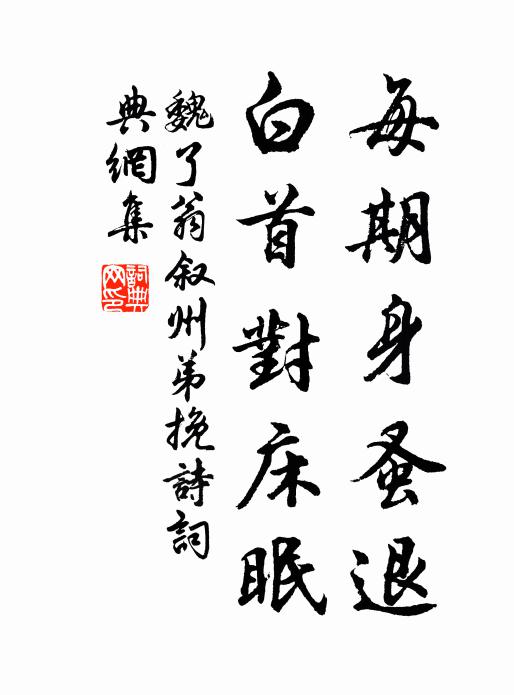 每期身蚤退
白首對床眠
魏了翁叙州弟挽詩詞
典網集
詞典網印